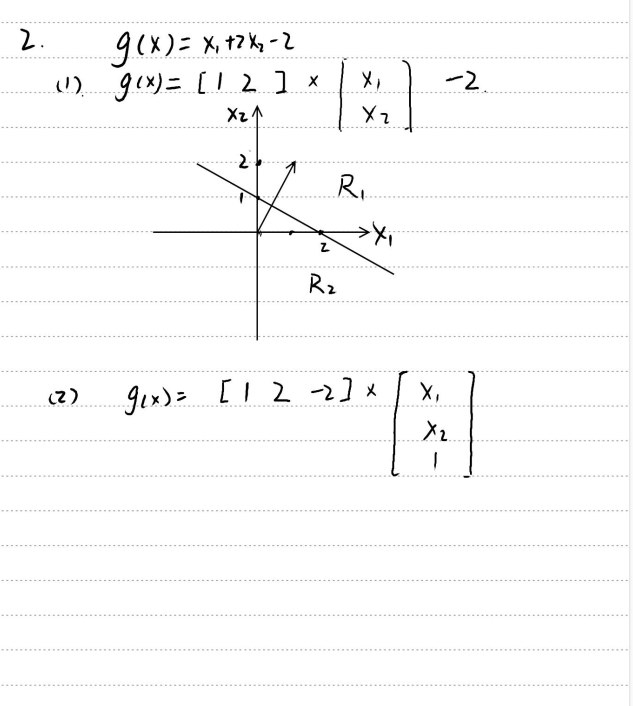 2. g(x) = x₁+2x₂-2
(1) g(x) = [ 1 2 ] × [ x₁ -2.
x₂ ]
x₂
2
R₁
1
x₁
2
R₂
(2) g(x) = [ 1 2 -2 ] × [ x₁
x₂
1 ]